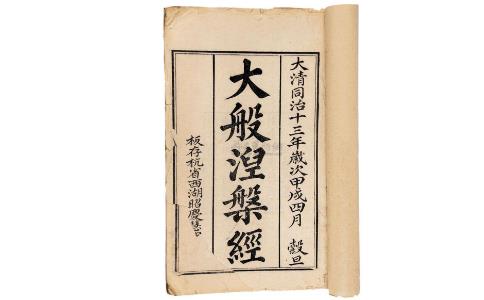 大清同治十三年歲次甲戌四月 穀旦
大般涅槃經
板存杭省西湖昭慶寺